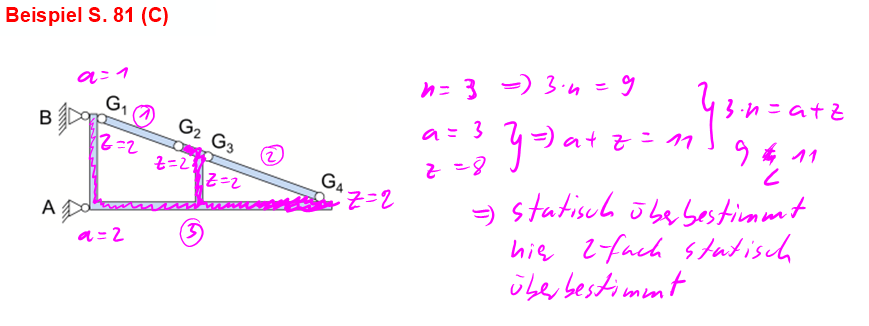 Beispiel S. 81 (C)
a = 1
B
G1
①
z = 2
G2
z = 2
G3
z = 2
②
G4
z = 2
A
a = 2
③
n = 3 => 3·n = 9
a = 3
z = 8
} => a + z = 11
} 3·n = a + z
9 < 11
=> statisch überbestimmt
hier 2-fach statisch
überbestimmt